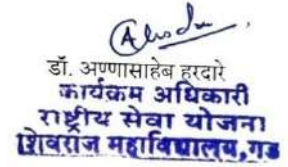 डॉ. अण्णासाहेब हरदारे
कार्यक्रम अधिकारी
राष्ट्रीय सेवा योजना
शिवराज महाविद्यालय,गड